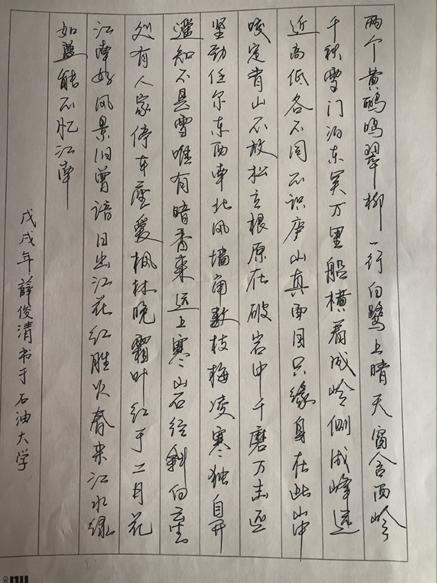 两个黄鹂鸣翠柳一行白鹭上晴天窗含西岭
千秋雪门泊东吴万里船横看成岭侧成峰远
近高低各不同不识庐山真面目只缘身在此山中
咬定青山不放松立根原在破岩中千磨万击还
坚劲任尔东西南北风墙角数枝梅凌寒独自开
遥知不是雪唯有暗香来远上寒山石径斜白云
处有人家停车坐爱枫林晚霜叶红于二月花
江南好风景旧曾谙日出江花红胜火春来江水绿
如蓝能不忆江南
戊戌年薛俊清书于石油大学